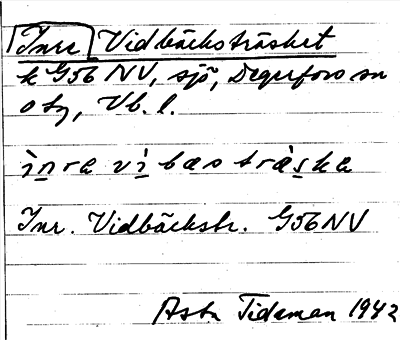 Inre Vidbäcksträsket
k G56 NV, sjö, Degerfors sn
o tg, Vb. l.
ìnra vì bas tràska
Inr. Vidbäckstr. G56 NV
Astr Tideman 1942